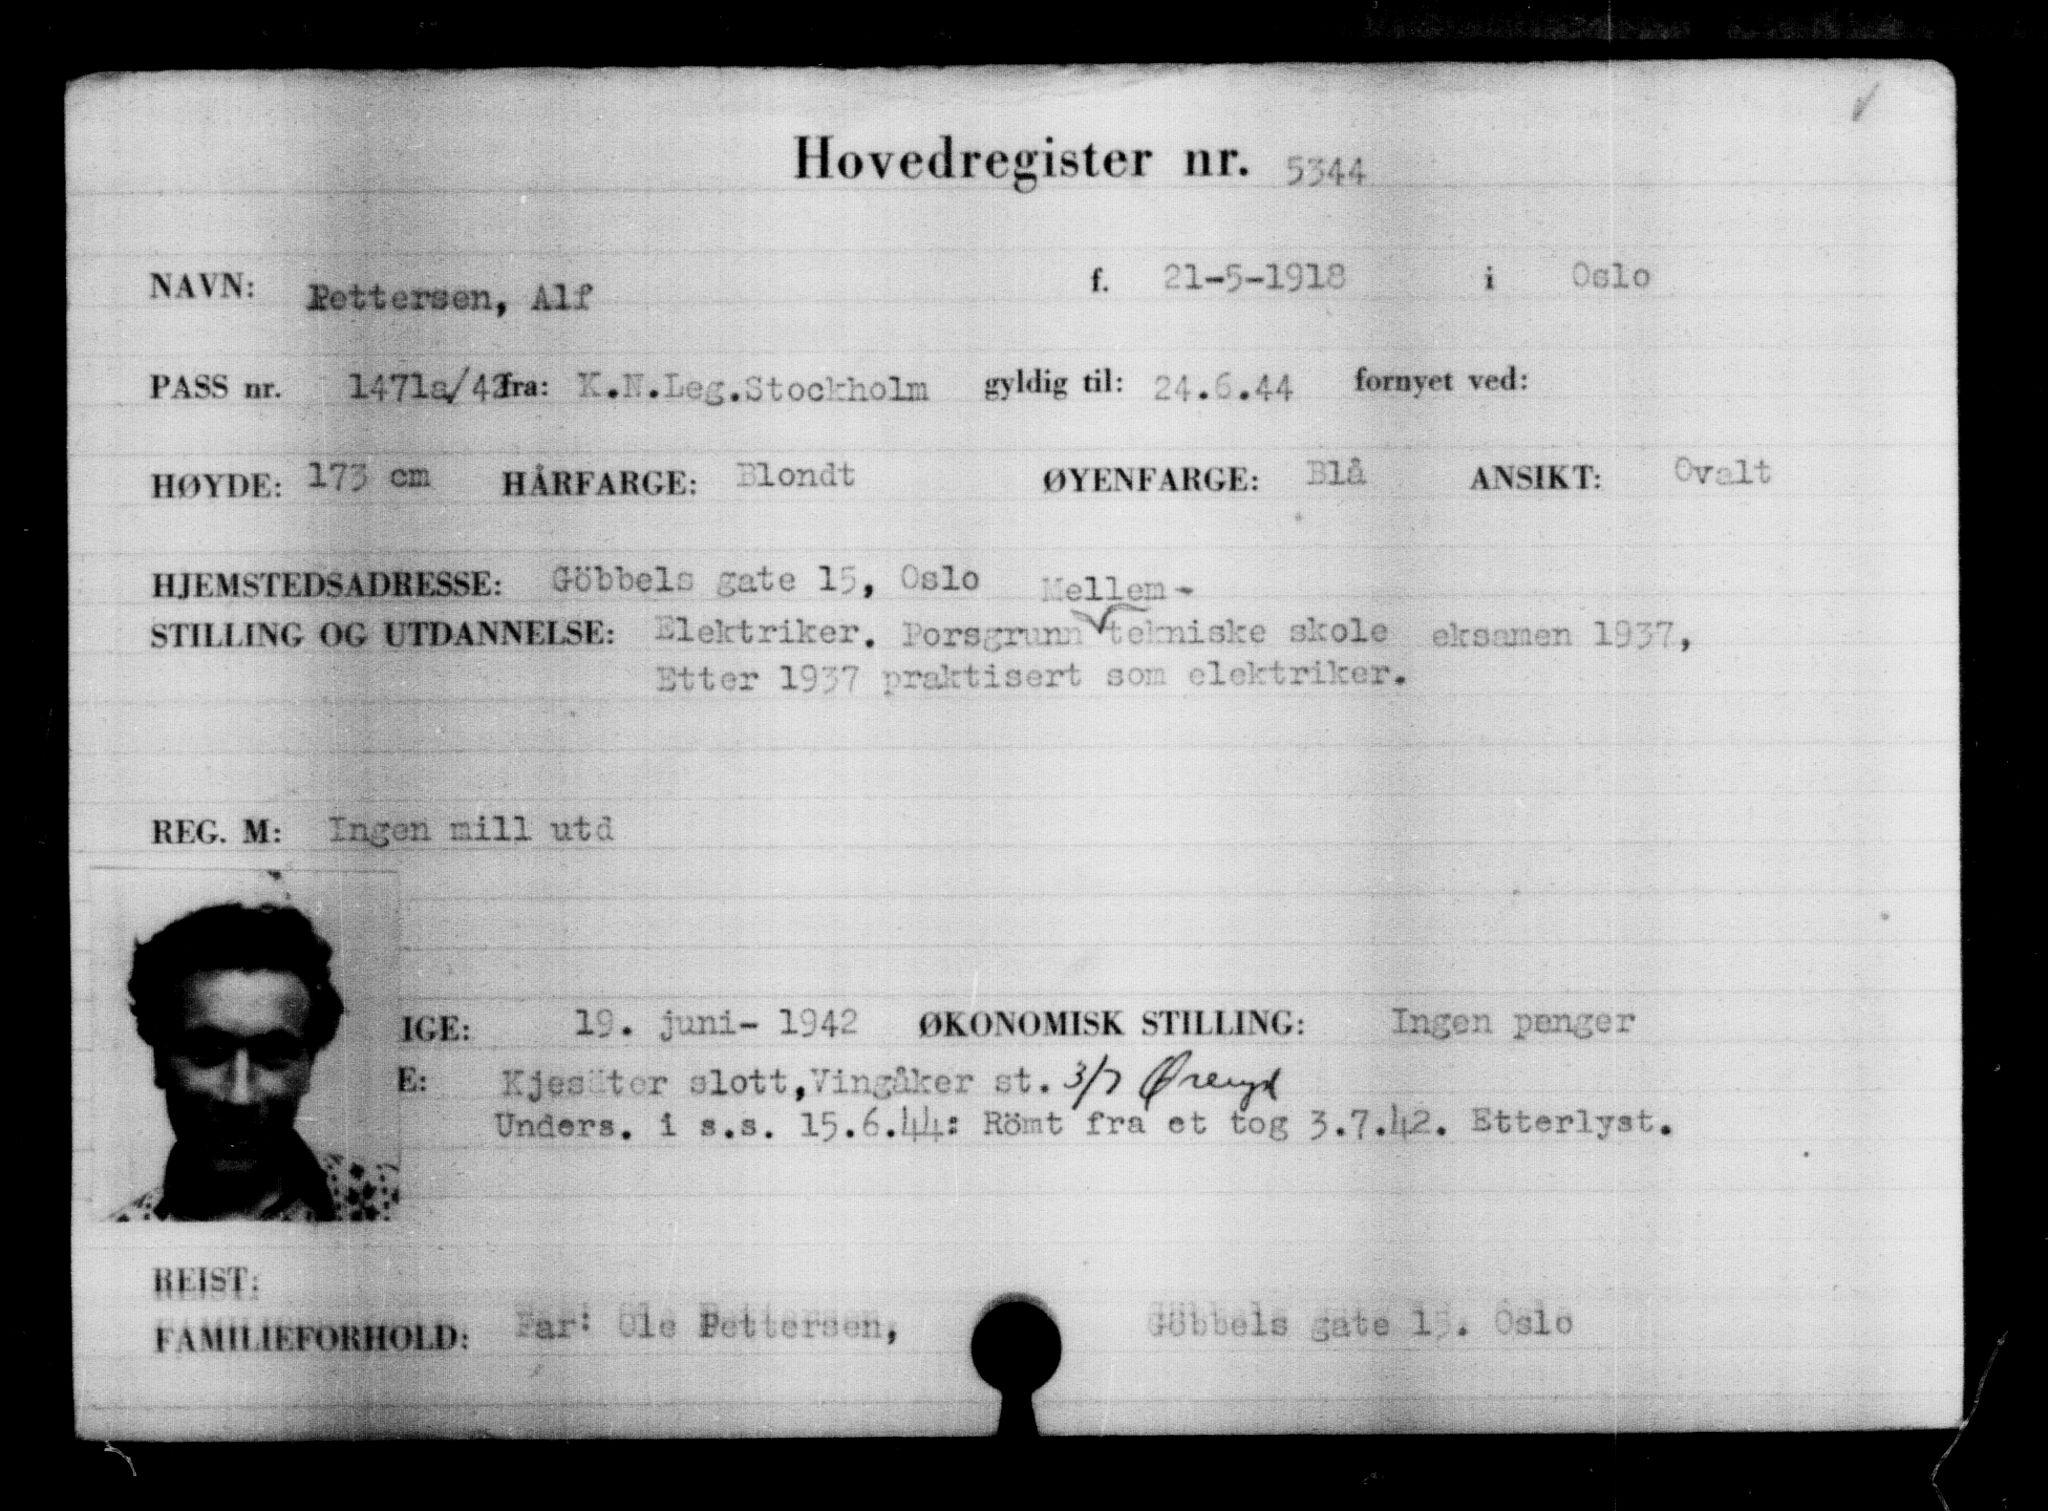 Hovedregister nr. 5344
NAVN: Pettersen, Alf f. 21-5-1918 i Oslo
PASS nr. 1471a/42 fra: K.N.Leg.Stockholm gyldig til: 24.6.44 fornyet ved:
HØYDE: 173 cm HÅRFARGE: Blondt ØYENFARGE: Blå ANSIKT: Ovalt
HJEMSTEDSADRESSE: Göbbels gate 15, Oslo Mellem-
STILLING OG UTDANNELSE: Elektriker. Porsgrunn tekniske skole eksamen 1937,
Etter 1937 praktisert som elektriker.
REG. M: Ingen mill utd
IGE: 19. juni- 1942 ØKONOMISK STILLING: Ingen penger
E: Kjesäter slott, Vingåker st. 3/7
Unders. i s.s. 15.6.44: Römt fra et tog 3.7.42. Etterlyst.
REIST:
FAMILIEFORHOLD: Far: Ole Pettersen, Göbbels gate 15. Oslo